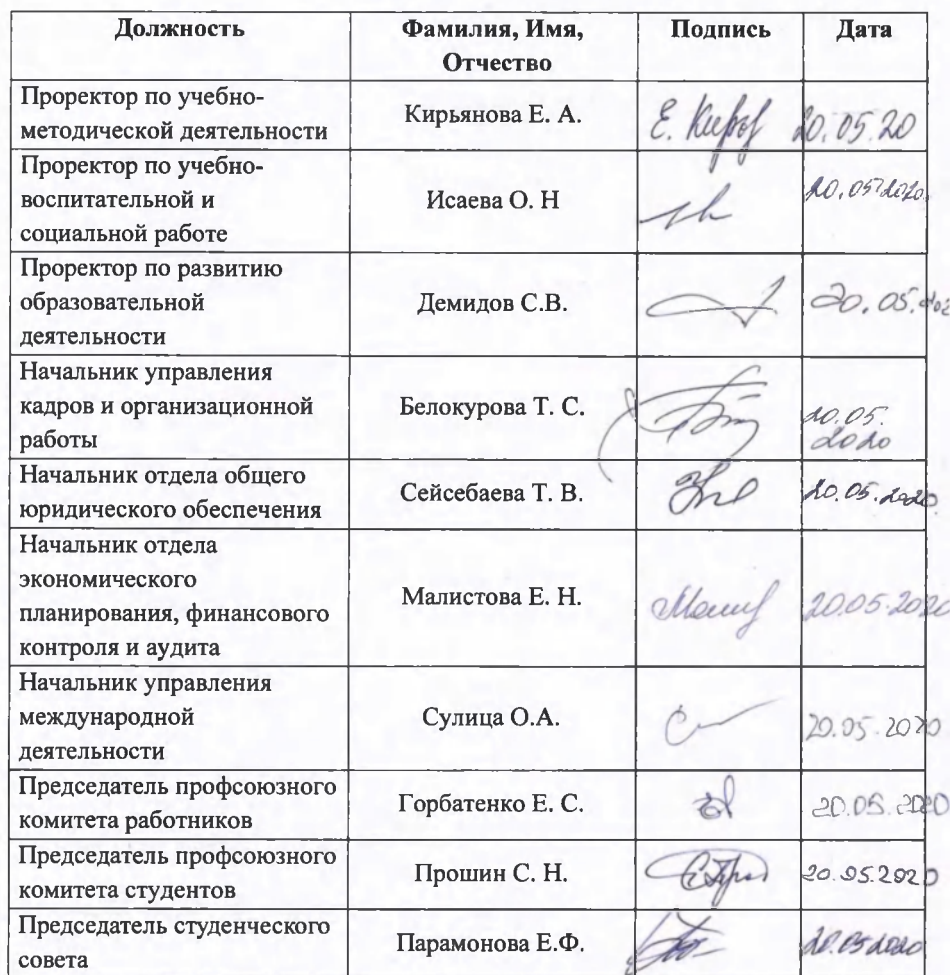 Должность Фамилия, Имя, Подпись Дата
Отчество
Проректор по учебно-
методической деятельности Кирьянова Е. А. 20.05.20
Проректор по учебно-
воспитательной и
социальной работе Исаева О. Н 20.05.2020
Проректор по развитию
образовательной
деятельности Демидов С.В. 20.05.202
Начальник управления
кадров и организационной
работы Белокурова Т. С. 20.05.
2020
Начальник отдела общего
юридического обеспечения Сейсебаева Т. В. 20.05.2020
Начальник отдела
экономического
планирования, финансового
контроля и аудита Малистова Е. Н. 20.05.2020
Начальник управления
международной
деятельности Сулица О.А. 20.05.2020
Председатель профсоюзного
комитета работников Горбатенко Е. С. 20.05.2020
Председатель профсоюзного
комитета студентов Прошин С. Н. 20.05.2020
Председатель студенческого
совета Парамонова Е.Ф. 20.05.2020